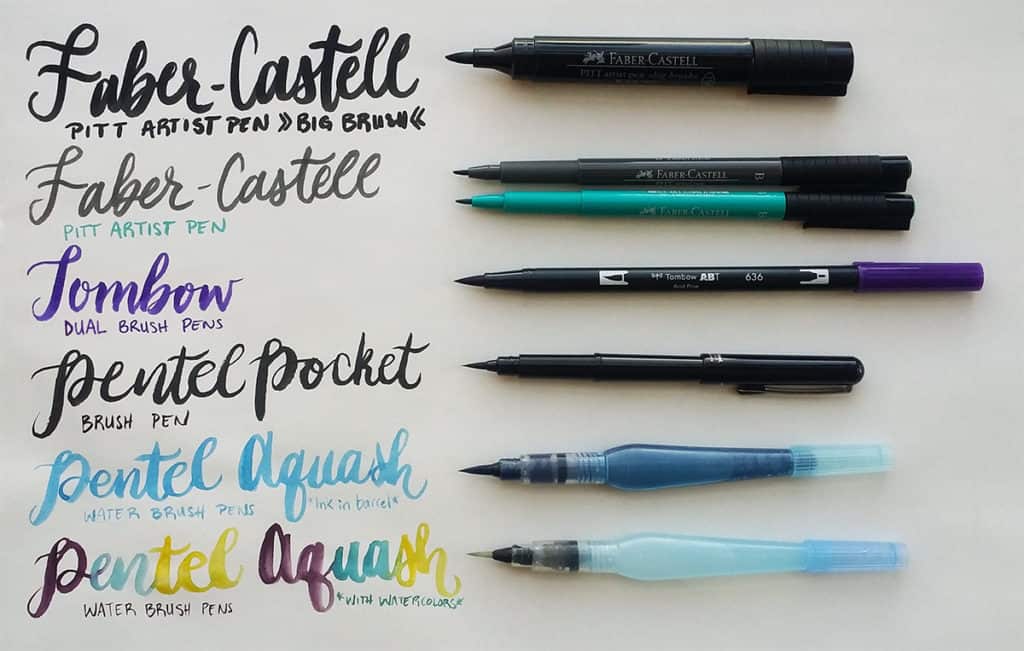 Faber-Castell
PITT ARTIST PEN »BIG BRUSH«
FABER-CASTELL
PITT artist pen big brush
Faber-Castell
PITT ARTIST PEN
FABER-CASTELL B
FABER-CASTELL B
Tombow
DUAL BRUSH PENS
Tombow ABT 636
Pentel Pocket
BRUSH PEN
Pentel Aquash
WATER BRUSH PENS *ink in barrel*
Pentel Aquash
WATER BRUSH PENS *WITH WATERCOLORS*